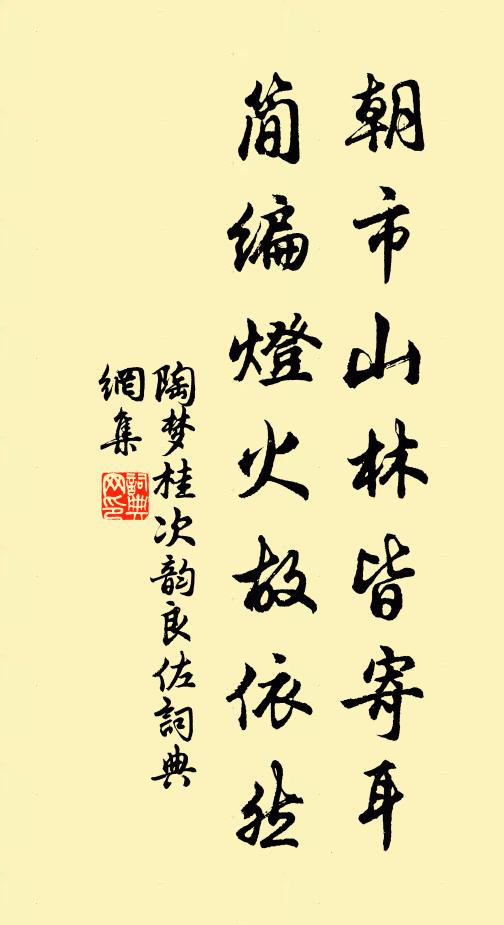 朝市山林皆寄耳
简编燈火故依然
陶梦桂次韵良佐詞典
網集
詞典
网印